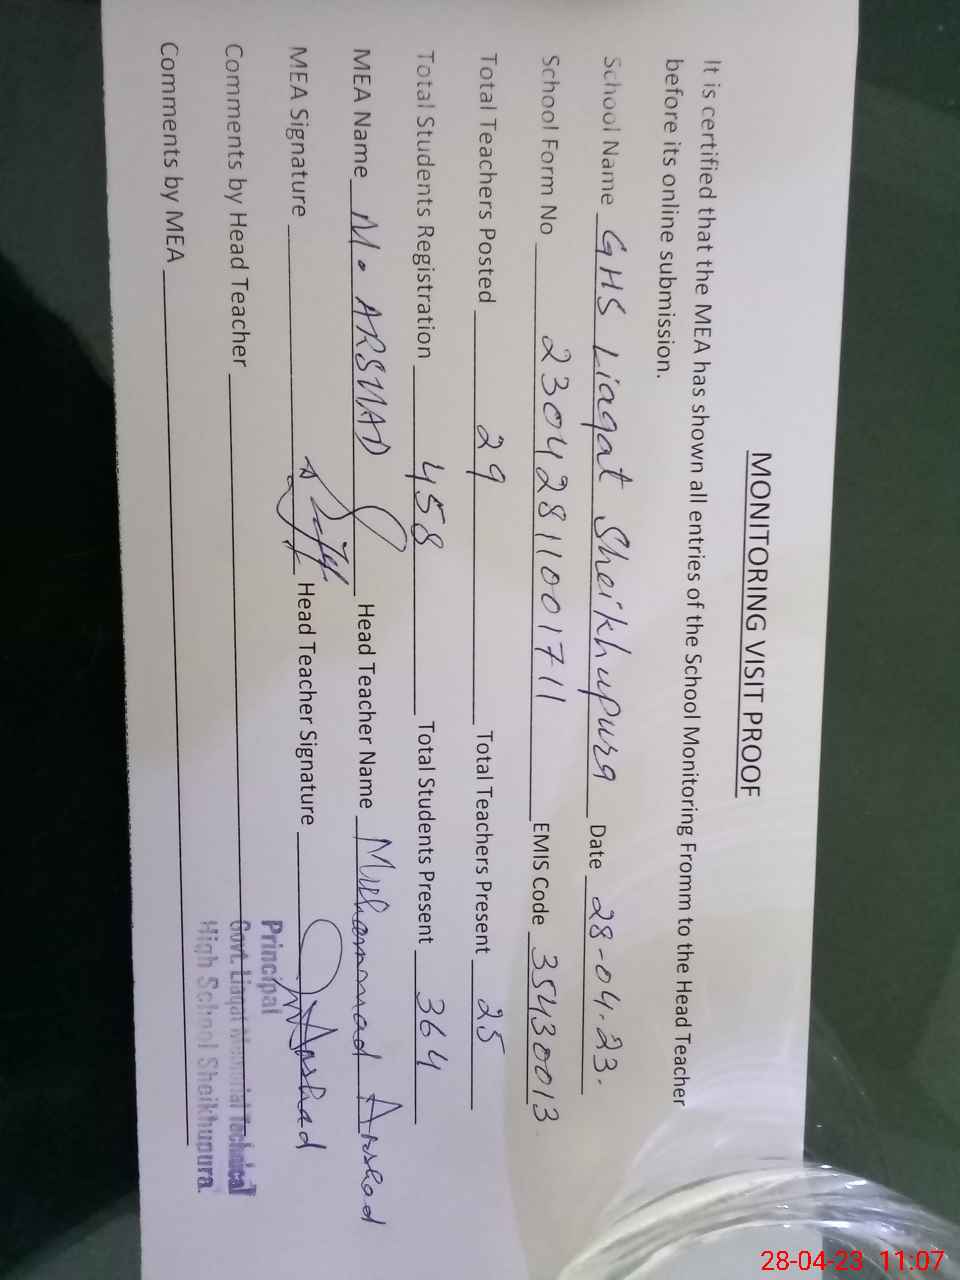 MONITORING VISIT PROOF
It is certified that the MEA has shown all entries of the School Monitoring Fromm to the Head Teacher
before its online submission.
School Name GHS Liaqat Sheikhupura Date 28-04-23.
School Form No 23042811001711 EMIS Code 35430013
Total Teachers Posted 29 Total Teachers Present 25
Total Students Registration 458 Total Students Present 364
MEA Name M. ARSHAD Head Teacher Name Muhammad Arshad
MEA Signature Head Teacher Signature Arshad
Comments by Head Teacher
Comments by MEA
Principal
Govt. Liaqat Memorial Technical
High School Sheikhupura.
28-04-23 11:07